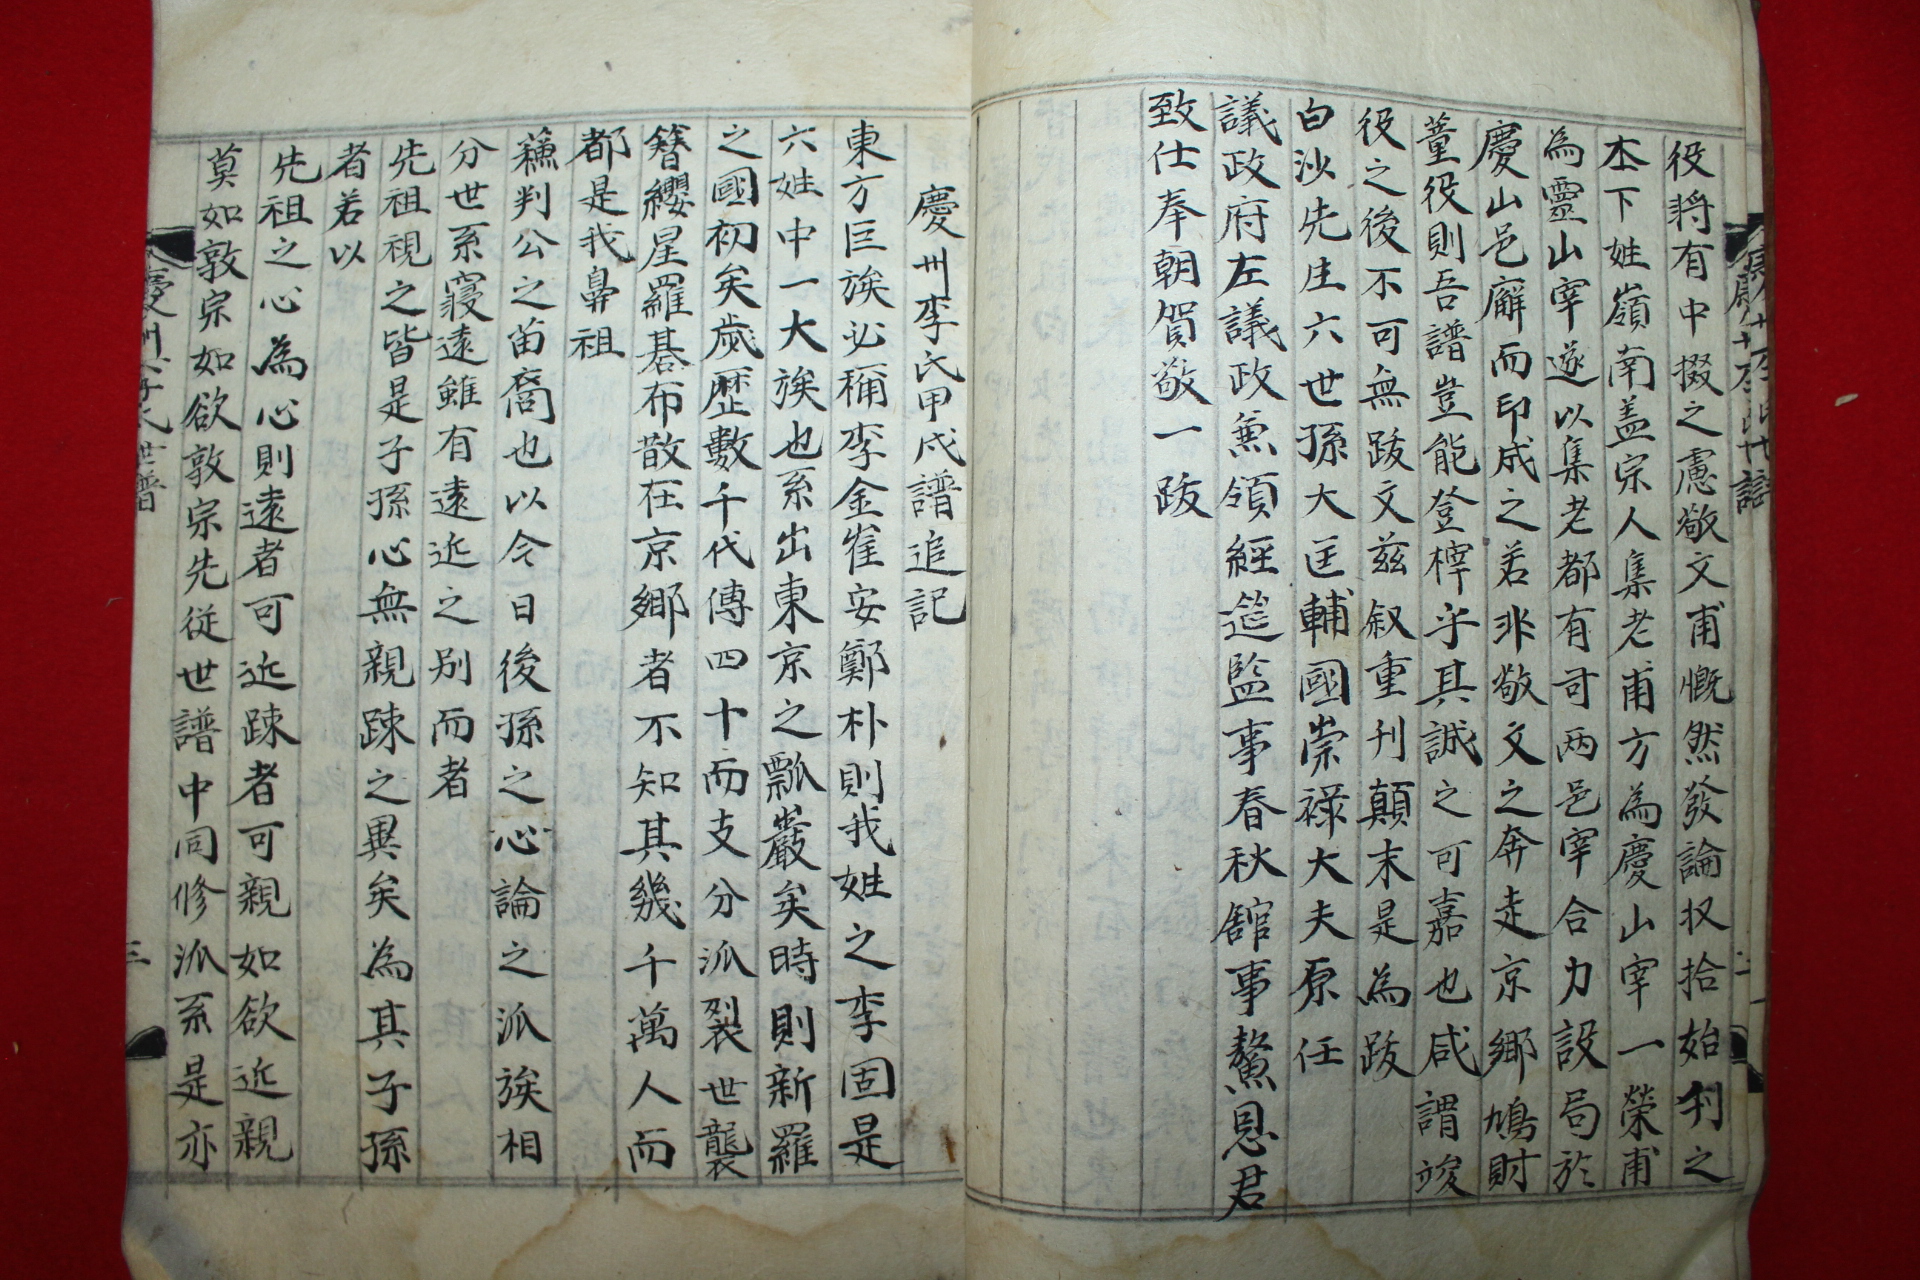 役將有中掇之慮敬文甫慨然發論収拾始刋之
本下姓嶺南盖宗人集老甫方為慶山宰一榮甫
為靈山宰遂以集老都有司兩邑宰合力設局於
慶山邑廨而印成之若非敬文之奔走京鄉鳩財
董役則吾譜豈能登梓乎其誠之可嘉也咸謂竣
役之後不可無跋文茲叙重刊顛末是為跋
白沙先生六世孫大匡輔國崇祿大夫原任
議政府左議政兼領經筵監事春秋舘事鰲恩君
致仕奉朝賀敬一跋
慶州李氏甲戍譜追記
東方巨族必稱李金崔安鄭朴則我姓之李固是
六姓中一大族也系出東京之瓢巖矣時則新羅
之國初矣歲歷數千代傳四十而支分派裂世襲
簪纓星羅碁布散在京鄉者不知其幾千萬人而
都是我鼻祖
蘓判公之苗裔也以今日後孫之心論之派族相
分世系寢遠雖有遠近之别而者
先祖視之皆是子孫心無親踈之異矣為其子孫
者若以
先祖之心為心則遠者可近踈者可親如欲近親
莫如敦宗如欲敦宗先從世譜中同修派系是亦
慶州李氏世譜
三